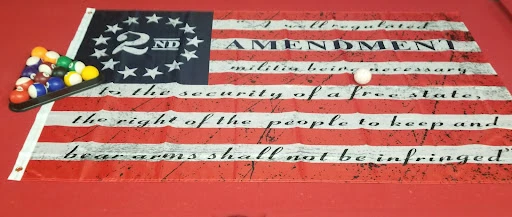 2ND
"A well regulated
AMENDMENT
militia being necessary
to the security of a free state,
the right of the people to keep and
bear arms shall not be infringed"